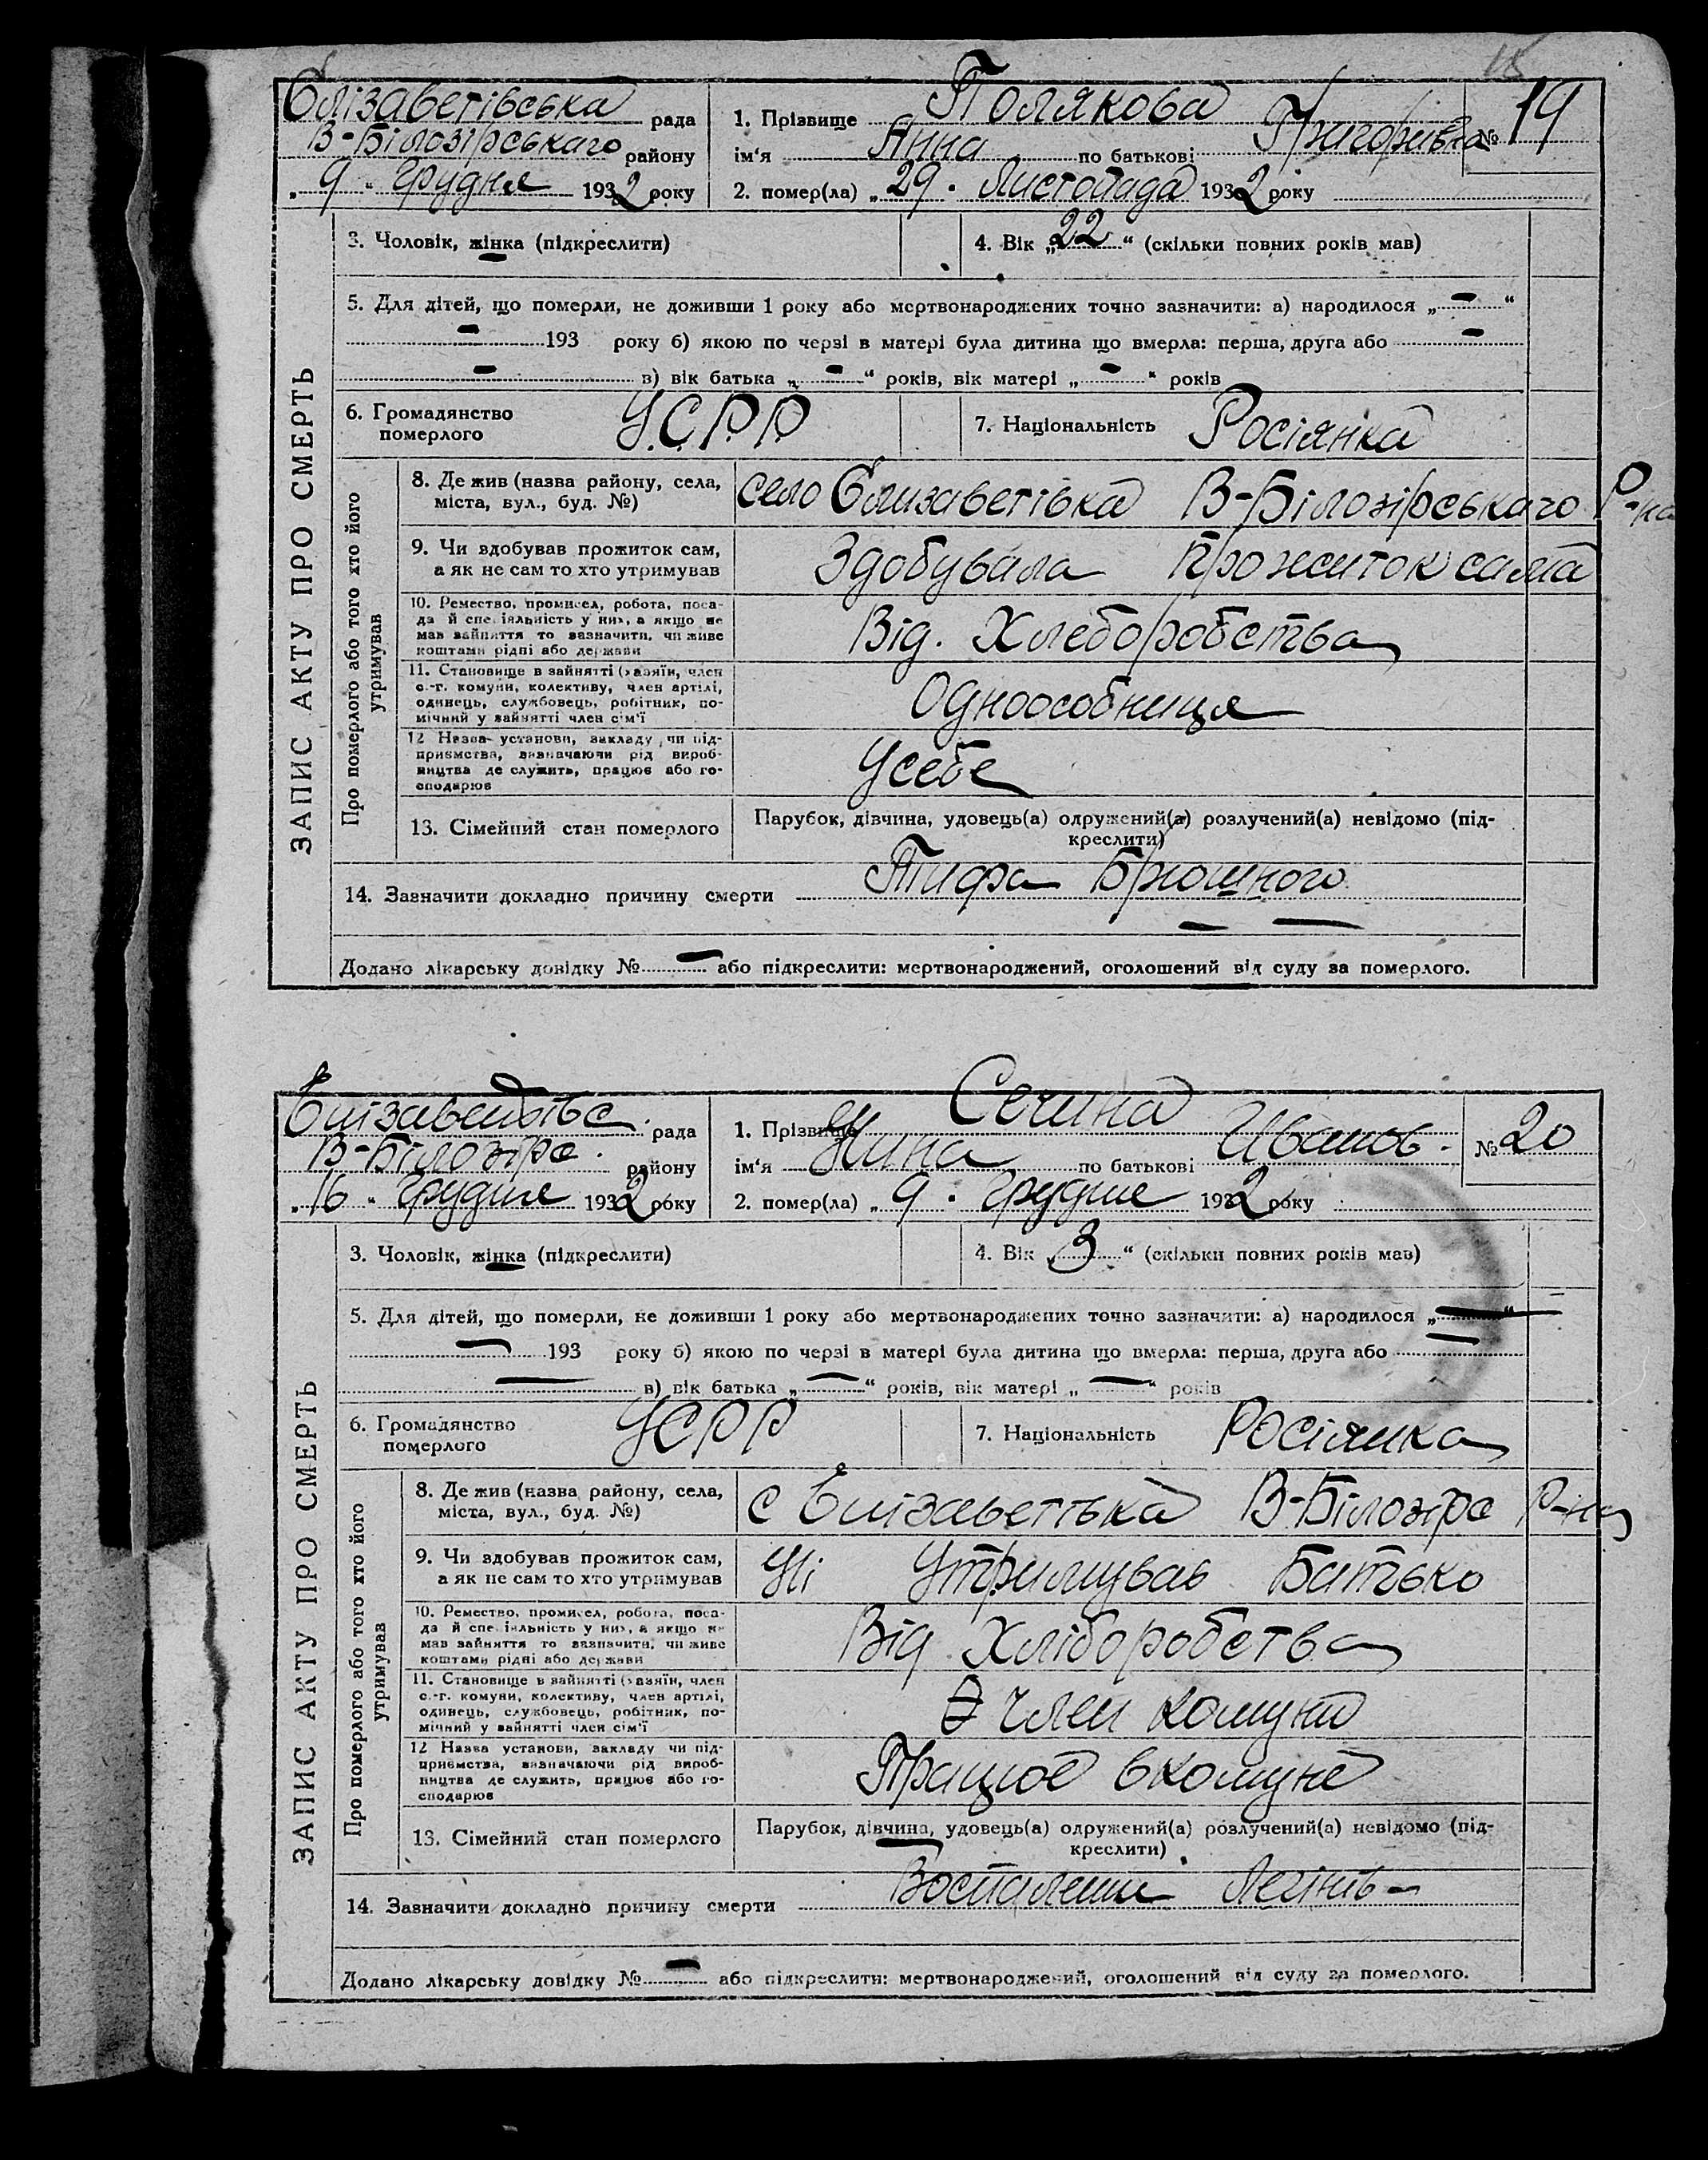 15
Єлізаветівська рада
В-Білозірського району
„ 9 “ Грудня 1932 року
1. Прізвище Полякова
ім‘я Анна по батькові Григорівна
№ 19
2. помер(ла) „ 29 . Листопада 1932 року
ЗАПИС АКТУ ПРО СМЕРТЬ
3. Чоловік, жінка (підкреслити)
4. Вік „ 22 “ (скільки повних років мав)
5. Для дітей, що померли, не доживши 1 року або мертвонароджених точно зазначити: а) народилося „ — “
— 193 року б) якою по черзі в матері була дитина що вмерла: перша, друга або —
— в) вік батька „ — “ років, вік матері „ — “ років
6. Громадянство
померлого
У.С.Р.Р.
7. Національність Росіянка
Про померлого або того хто його
утримував
8. Де жив (назва району, села,
міста, вул., буд. №)
село Єлизаветівка В-Білозірського Р-на
9. Чи здобував прожиток сам,
а як не сам то хто утримував
Здобувала прожиток сама
10. Ремество, промисел, робота, поса-
да й спеціяльність у них, а якщо не
мав зайняття то зазначити, чи живе
коштами рідні або держави
Від. Хлеборобства
11. Становище в зайнятті (хазяїн, член
с.-г. комуни, колективу, член артілі,
одинець, службовець, робітник, по-
мічний у зайнятті член сім‘ї
Одноособниця
12 Назва установи, закладу чи під-
приємства, визначаючи рід вироб-
ництва де служить, працює або го-
сподарює
Усебе
13. Сімейний стан померлого
Парубок, дівчина, удовець(а) одружений(а) розлучений(а) невідомо (під-
креслити)
14. Зазначити докладно причину смерти Тифа Брюшного
Додано лікарську довідку № — або підкреслити: мертвонароджений, оголошений від суду за померлого.
Єлізаветівс. рада
В-Білозірс. району
„ 16 “ Грудня 1932 року
1. Прізвище Сечина
ім‘я Нина по батькові Иванов.
№ 20
2. помер(ла) „ 9 . Грудня 1932 року
ЗАПИС АКТУ ПРО СМЕРТЬ
3. Чоловік, жінка (підкреслити)
4. Вік „ 3 “ (скільки повних років мав)
5. Для дітей, що померли, не доживши 1 року або мертвонароджених точно зазначити: а) народилося „ — “
— 193 року б) якою по черзі в матері була дитина що вмерла: перша, друга або —
— в) вік батька „ — “ років, вік матері „ — “ років
6. Громадянство
померлого
УСРР
7. Національність Росіянка
Про померлого або того хто його
утримував
8. Де жив (назва району, села,
міста, вул., буд. №)
с Єлізаветівка В-Білозірс Р-на
9. Чи здобував прожиток сам,
а як не сам то хто утримував
Ні Утримував Батько
10. Ремество, промисел, робота, поса-
да й спеціяльність у них, а якщо не
мав зайняття то зазначити, чи живе
коштами рідні або держави
Від Хліборобства
11. Становище в зайнятті (хазяїн, член
с.-г. комуни, колективу, член артілі,
одинець, службовець, робітник, по-
мічний у зайнятті член сім‘ї
Член комуни
12 Назва установи, закладу чи під-
приємства, визначаючи рід вироб-
ництва де служить, працює або го-
сподарює
Працює в комуне
13. Сімейний стан померлого
Парубок, дівчина, удовець(а) одружений(а) розлучений(а) невідомо (під-
креслити)
14. Зазначити докладно причину смерти Воспалении Легінь
Додано лікарську довідку № — або підкреслити: мертвонароджений, оголошений від суду за померлого.